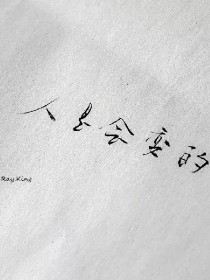 人是会变的
RayKing